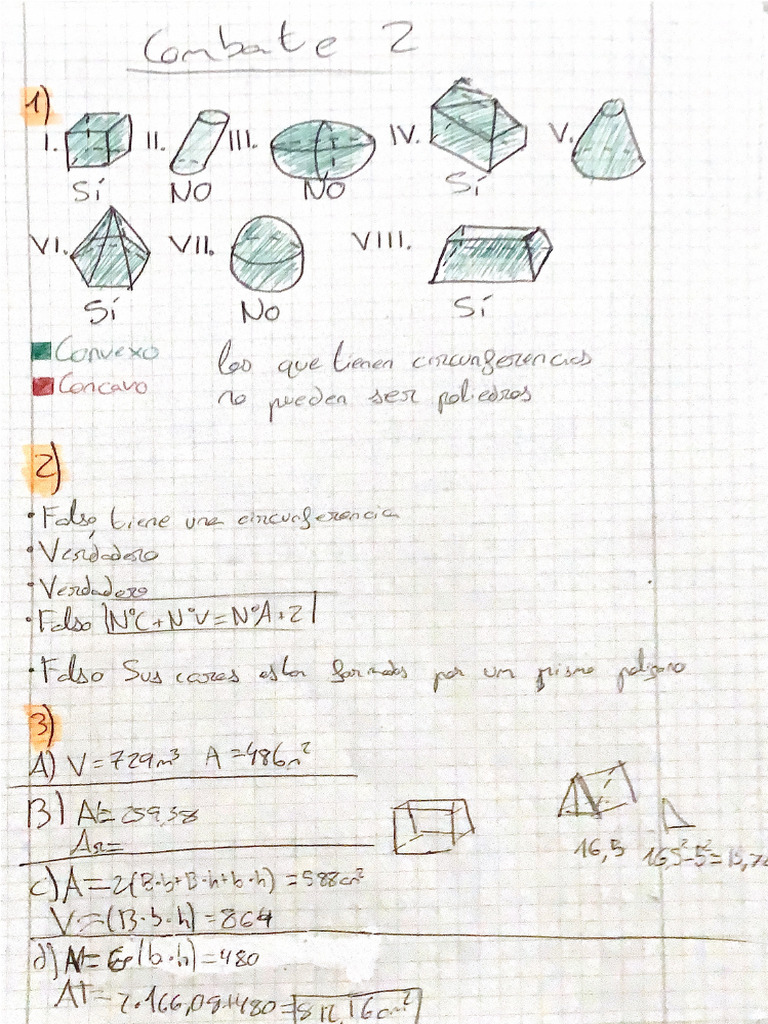 Combate 2
1)
I. II. III. IV. V.
Sí NO NO Sí
VI. VII. VIII.
Sí No Sí
Convexo Los que tienen circunferencias
Concavo no pueden ser poliedros
2)
• Falso, tiene una circunferencia
• Verdadero
• Verdadero
• Falso NºC + NºV = NºA + 2
• Falso Sus caras estan formadas por un mismo poligono
3)
A) V = 729m³ A = 486m²
B) 259,58
16,5
C) A = 2(B·b+B·h+b·h) = 588cm²
V = (B·b·h) = 864
d) (b·h) = 480
AT = 2·166,08+480 = 812,16cm²